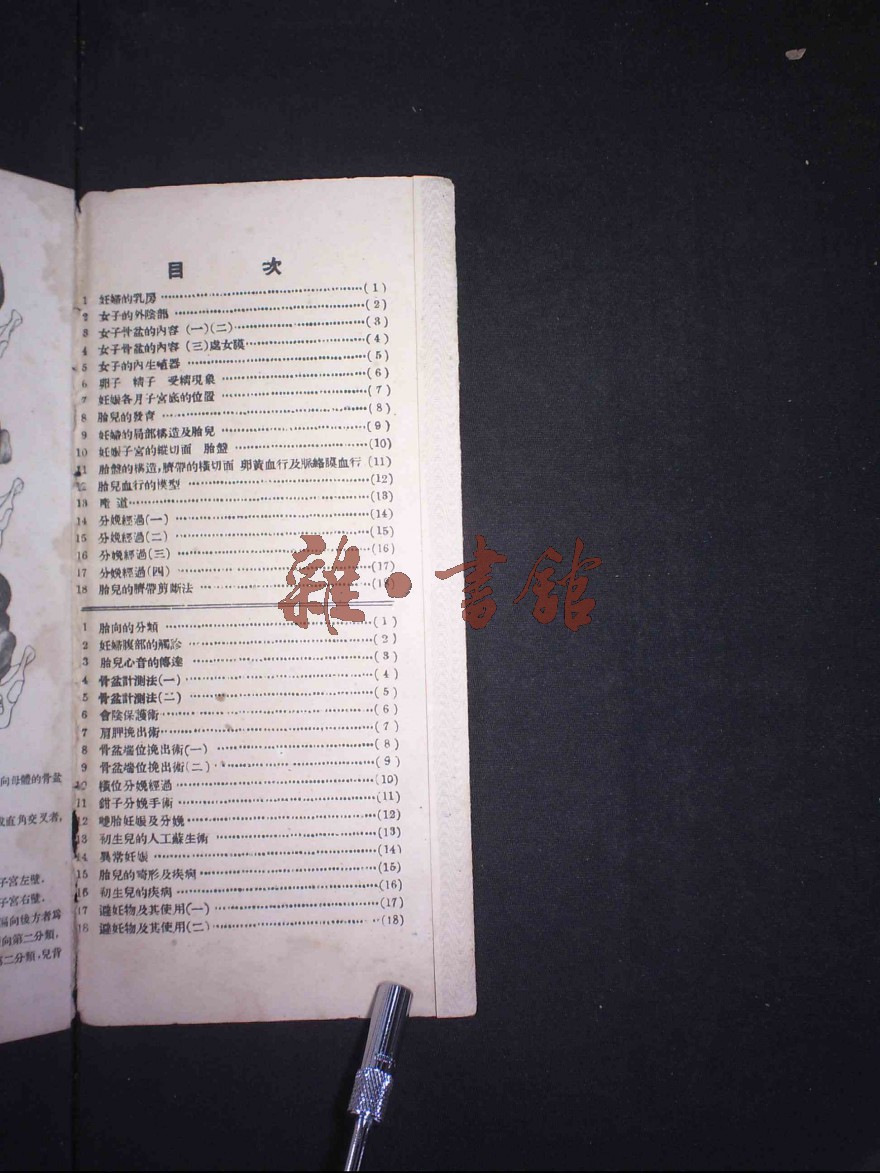 向母體的骨盆
成直角交叉者,
子宮左壁.
子宮右壁.
偏向後方者爲
向第二分類,
第二分類,兒背
目 次
1 妊婦的乳房 (1)
2 女子的外陰部 (2)
3 女子骨盆的內容(一)(二) (3)
4 女子骨盆的內容(三)處女膜 (4)
5 女子的內生殖器 (5)
6 卵子 精子 受精現象 (6)
7 妊娠各月子宮底的位置 (7)
8 胎兒的發育 (8)
9 妊婦的局部構造及胎兒 (9)
10 妊娠子宮的縱切面 胎盤 (10)
11 胎盤的構造,臍帶的橫切面 卵黃血行及脈絡膜血行 (11)
12 胎兒血行的模型 (12)
13 產道 (13)
14 分娩經過(一) (14)
15 分娩經過(二) (15)
16 分娩經過(三) (16)
17 分娩經過(四) (17)
18 胎兒的臍帶剪斷法 (18)
1 胎向的分類 (1)
2 妊婦腹部的觸診 (2)
3 胎兒心音的傳達 (3)
4 骨盆計測法(一) (4)
5 骨盆計測法(二) (5)
6 會陰保護術 (6)
7 肩胛挽出術 (7)
8 骨盆端位挽出術(一) (8)
9 骨盆端位挽出術(二) (9)
10 橫位分娩經過 (10)
11 鉗子分娩手術 (11)
12 雙胎妊娠及分娩 (12)
13 初生兒的人工蘇生術 (13)
14 異常妊娠 (14)
15 胎兒的畸形及疾病 (15)
16 初生兒的疾病 (16)
17 避妊物及其使用(一) (17)
18 避妊物及其使用(二) (18)
雜·書館